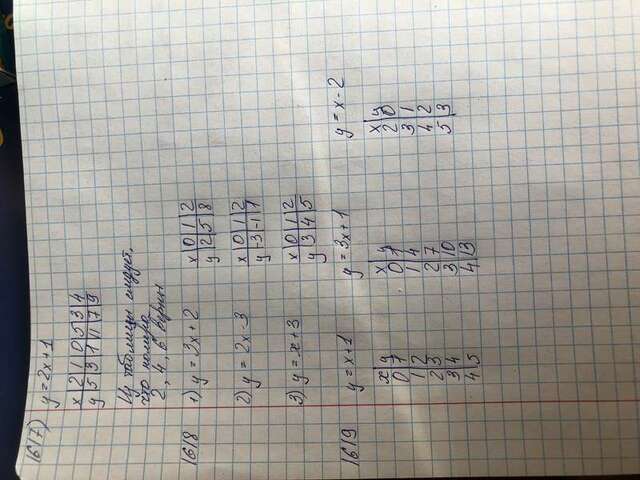 1617)
y = 2x+1
x 2 1 0 5 3 4
y 5 3 1 11 7 9
Из таблицы следует,
что номера
2, 4, 6 верны
1618
1) y = 3x+2
x 0 1 2
y 2 5 8
2) y = 2x-3
x 0 1 2
y -3 -1 1
3) y = x+3
x 0 1 2
y 3 4 5
1619
y = x+1
x y
0 1
1 2
2 3
3 4
4 5
y = 3x+1
x y
0 1
1 4
2 7
3 10
4 13
y = x-2
x y
2 0
3 1
4 2
5 3